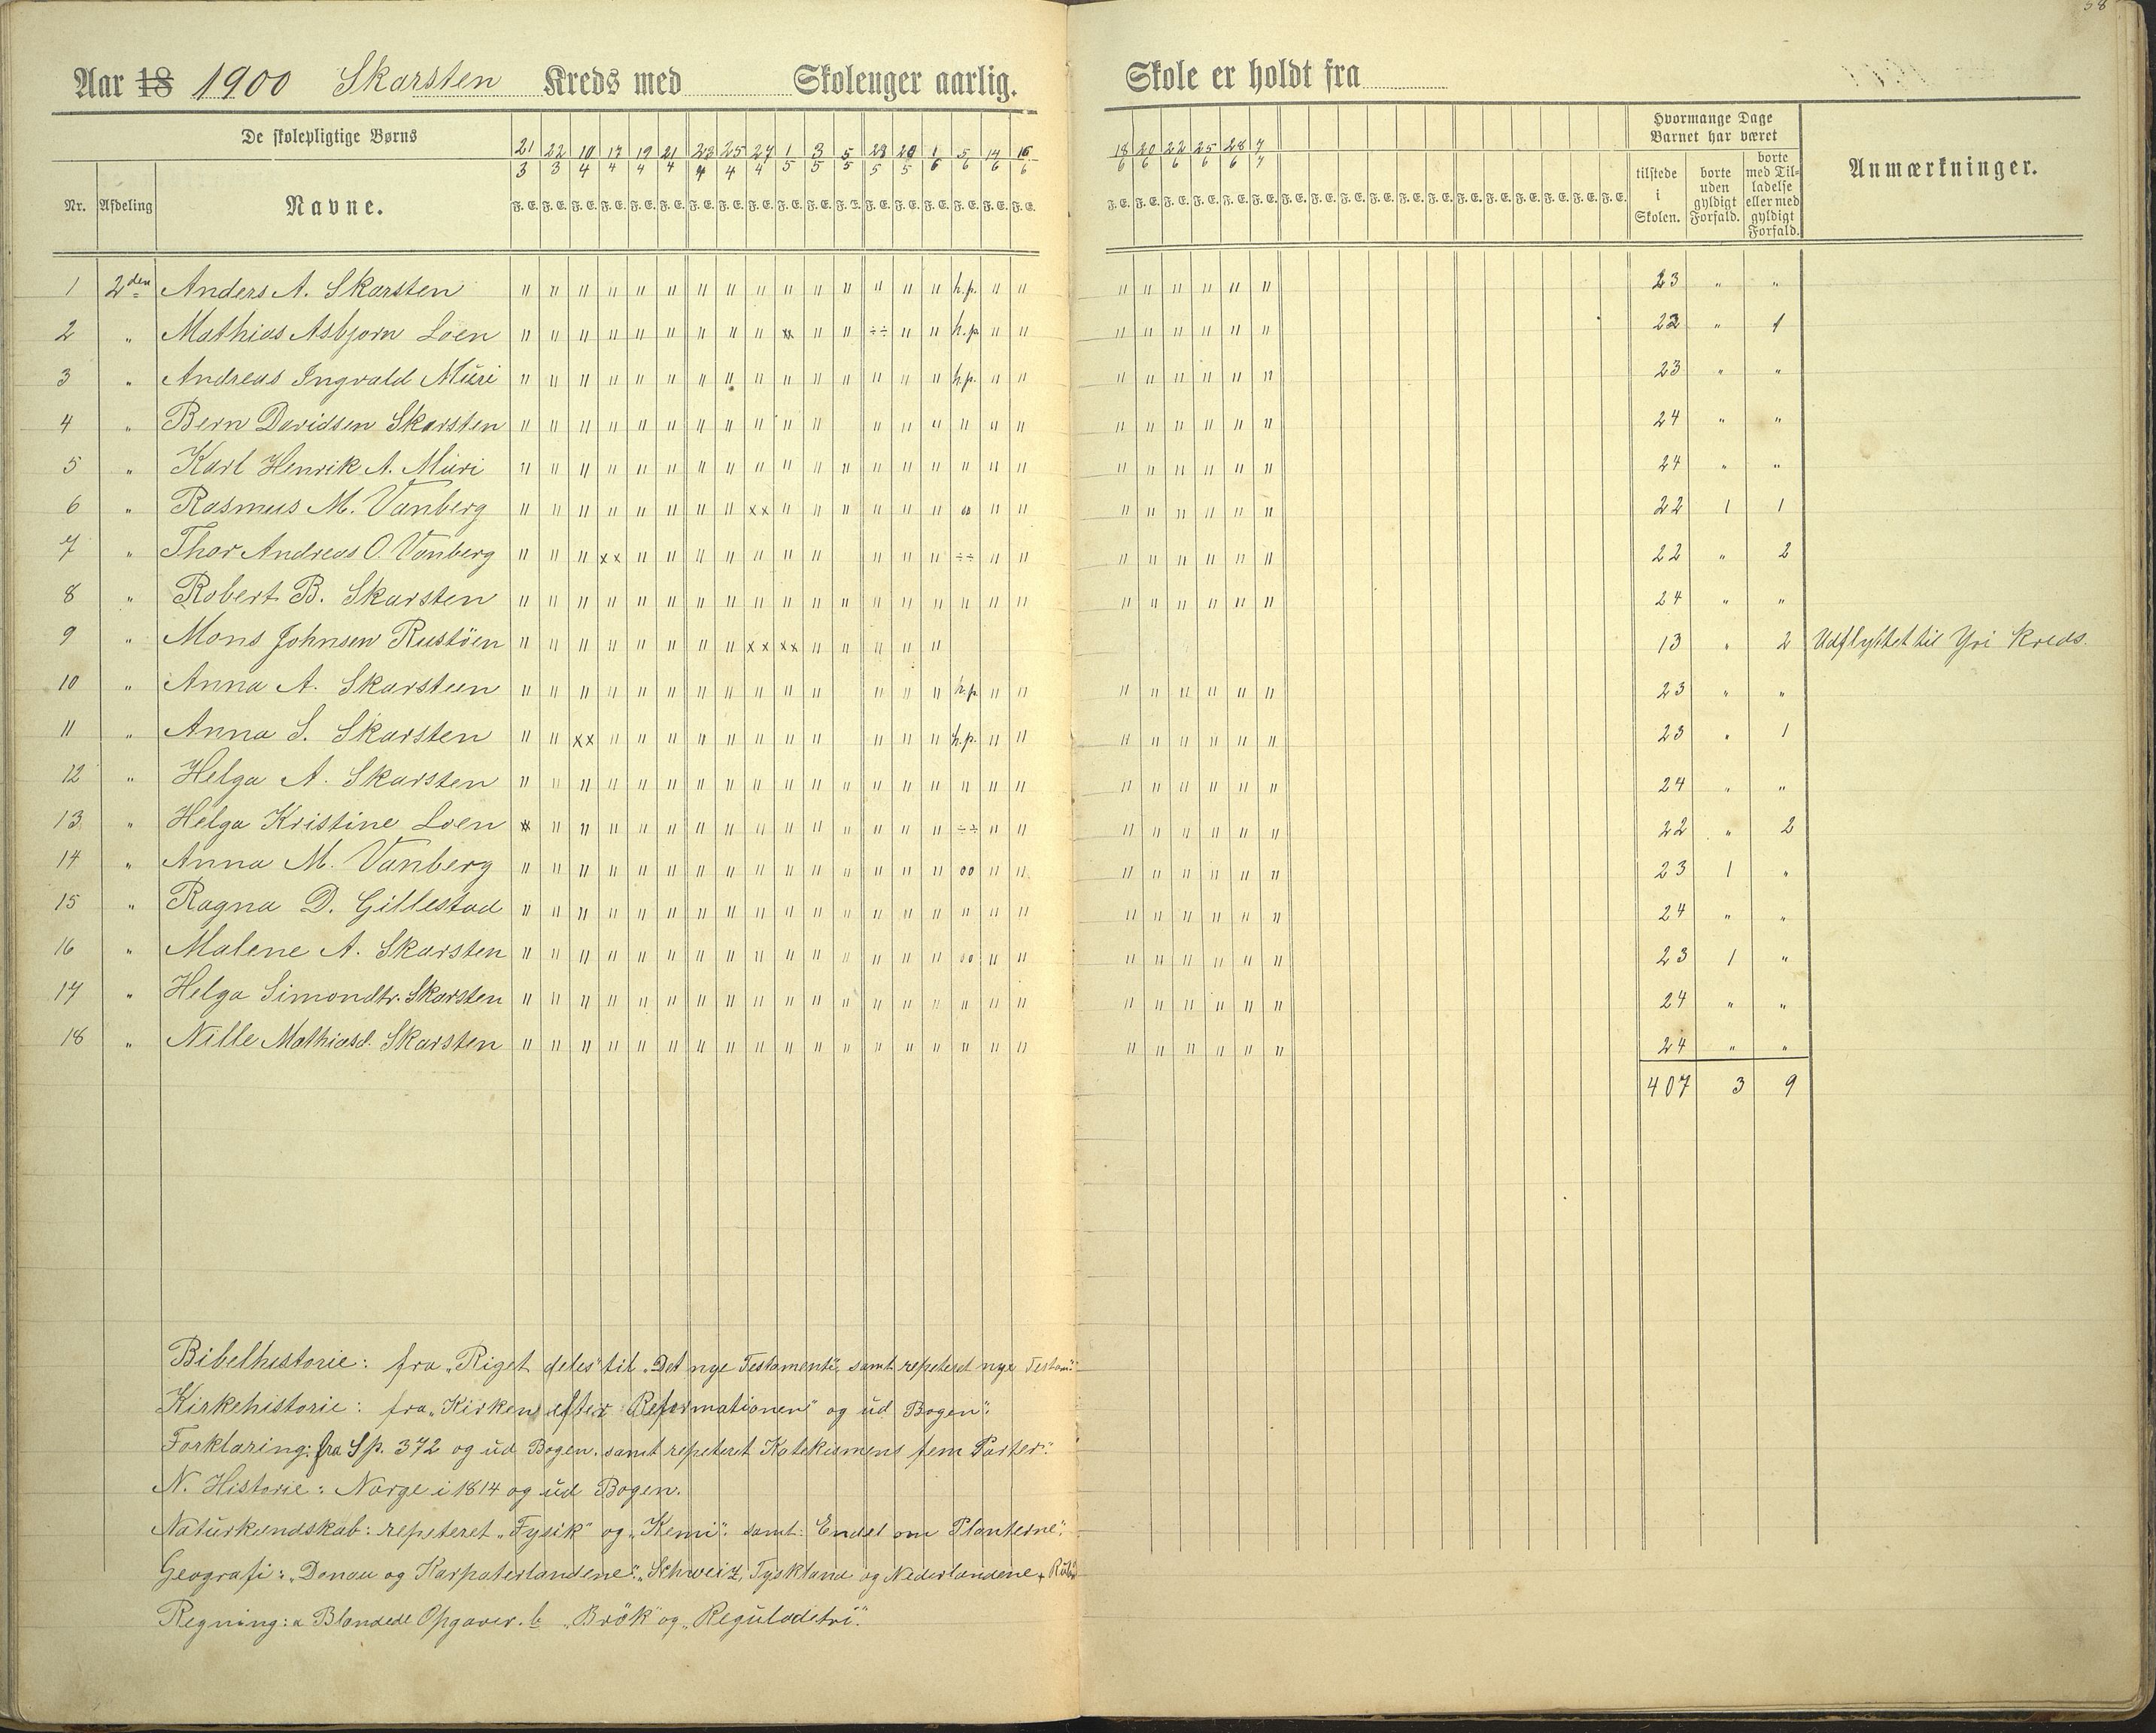 58
Aar 18 1900 Skarsten Kreds med Skoleuger aarlig. Skole er holdt fra
De skolepligtige Børns
Hvormange Dage Barnet har været
Nr. Afdeling Navne.
21/3 22/3 10/4 17/4 19/4 21/4 23/4 25/4 27/4 1/5 3/5 5/5 23/5 28/5 1/6 5/6 14/6 16/6
18/6 20/6 22/6 25/6 28/6 7/7
F. E.
tilstede i Skolen.
borte uden gyldigt Forfald.
borte med Tilladelse eller med gyldigt Forfald.
Anmærkninger.
1 2den Anders A. Skarsten h.p. 23 " "
2 " Mathias Asbjørn Loen h.p. 22 " 1
3 " Andreas Ingvald Muri h.p. 23 " "
4 " Bern Davidsen Skarsten 24 " "
5 " Karl Henrik A. Muri 24 " "
6 " Rasmus M. Vanberg xx 22 1 1
7 " Thor Andreas O. Vanberg xx ÷÷ 22 " 2
8 " Robert B. Skarsten 24 " "
9 " Mons Johnsen Rustöen xx xx 13 " 2 Udflyttet til Yri Kreds.
10 " Anna A. Skarsten h.p. 23 " "
11 " Anna S. Skarsten xx h.p. 23 " 1
12 " Helga A. Skarsten 24 " "
13 " Helga Kristine Loen ÷÷ 22 " 2
14 " Anna M. Vanberg oo 23 1 "
15 " Ragna D. Gillestad 24 " "
16 " Malene A. Skarsten oo 23 1 "
17 " Helga Simondtr. Skarsten 24 " "
18 " Nille Mathiasd. Skarsten 24 " "
407 3 9
Bibelhistorie: fra „Riget deles" til „Det nye Testamente", samt repeteret nye Testam."
Kirkehistorie: fra „Kirken efter Reformationen" og ud Bogen".
Forklaring: fra Sp. 372 og ud Bogen. samt repeteret Katekismens fem Parter".
N. Historie: Norge i 1814 og ud Bogen.
Naturkundskab: repeteret „Fysik" og „Kemi". samt: Endel om Planterne".
Geografi: „Donau og Karpaterlandene". „Schweiz, Tyskland og Nederlandene
Regning: a Blandede Opgaver. b „Brök" og „Reguladetri".